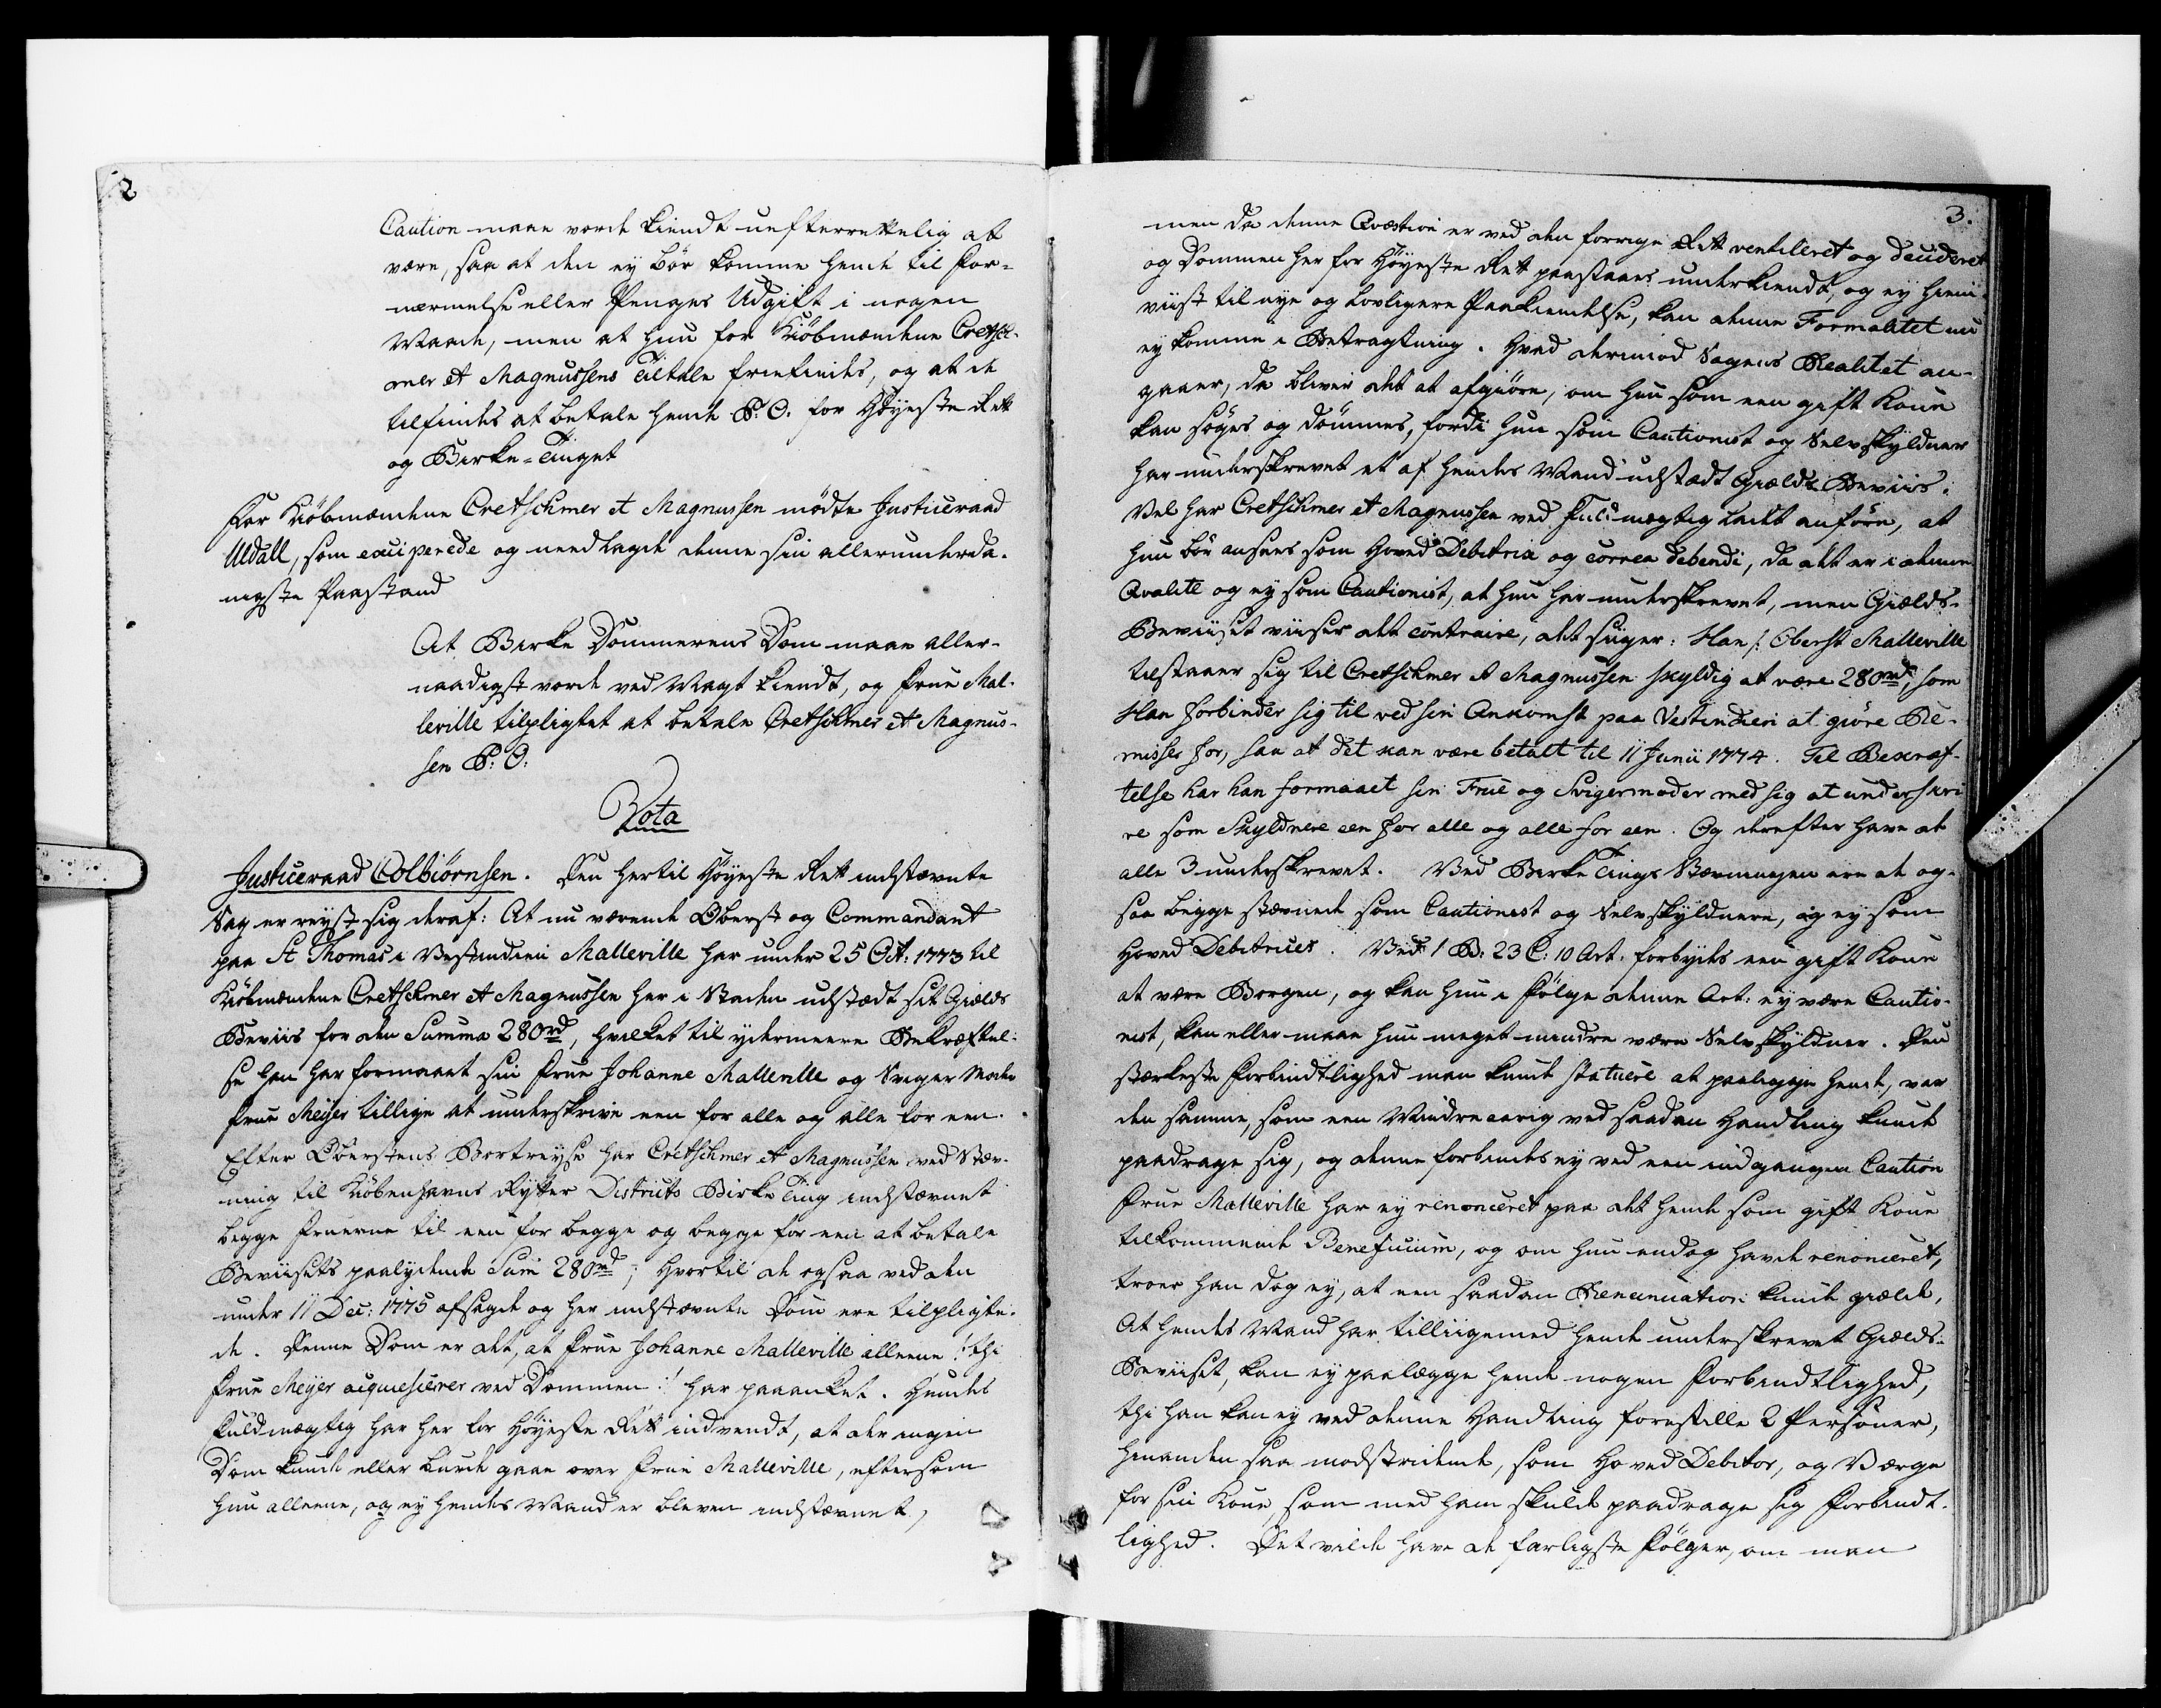 2
Caution maae vorde kiendt uefterrettelig at
være, saa at den ey bör komme hende til For-
nærmelse eller Penges Udgift i nogen
Maade, men at hun for Kiöbmændene Cretsch-
mer et Magnussens Tiltale friefindes, og at de
tilfindes at betale hende P: O. for Höyeste Rett
og Birke-Tinget
For Kiöbmændene Cretschmer et Magnussen mödte Justiceraad
Uldall, som exciperede og needlagde denne sin allerunderda-
nigste Paastand
At Birke Dommerens Dom maae aller-
naadigst vorde ved Magt kiendt, og Frue Mal-
leville tilpligtet at betale Cretschmer et Magnus-
sen P: O:
Vota
Justiceraad Colbiørnsen. Den hertil Höyeste Rett indstævnte
Sag er reyst sig deraf: At nu værende Oberst og Commandant
paa St Thomas i Vestindien Malleville har under 25 Oct: 1773 til
Kiöbmændene Cretschmer et Magnussen her i Staden udstædt sit Gields
Beviis for den Summa 280 rd, hvilket til ydermeere Bekræftel-
se han har formaaet sin Frue Johanne Malleville og Sviger Moder
Frue Meÿer tillige at underskrive een for alle og alle for een.
Efter Oberstens Bortreyse har Cretschmer et Magnussen ved Stæv-
ning til Kiöbenhavns Rytter Districts Birke Ting indstævnet
begge Fruerne til een for begge og begge for een at betale
Beviisets paalydende Sum 280 rd; hvortil de ogsaa ved den
under 11 Dec: 1775 afsagde og her indstævnte Dom ere tilpligte-
de. Denne Dom er det, at Frue Johanne Malleville alleene /: thi
Frue Meÿer acquiescerer ved Dommen :/ har paaanket. Hendes
Fuldmægtig har her for Höyeste Rett indvendt, at der ingen
Dom kunde eller burde gaae over Frue Malleville, eftersom
hun alleene, og ey hendes Mand er bleven indstævnet,
3.
men da denne Qvæstion er ved den forrige Rett ventilleret og decideret
og Dommen her for Höyeste Rett paastaaes underkiendt, og ey hiem-
viist til nye og lovligere Paakiendelse, kan denne Formalitet nu
ey komme i Betragtning. Hvad derimod Sagens Realitet an-
gaaer, da bliver det at afgiöre, om hun som een gift Kone
kan söges og dömmes, fordi hun som Cautionist og Selvskyldner
har underskrevet et af hendes Mand udstædt Gields Beviis.
Vel har Cretschmer et Magnussen ved Fuldmægtig ladet anföre, at
hun bör ansees som Hoved Debitrix og correa debendi, da det er i denne
Qvalite og ey som Cautionist, at hun har underskrevet, men Gields-
Beviiset viiser det contraire, det siiger: Han /: Oberst Malleville
tilstaaer sig til Cretschmer et Magnussen skyldig at være 280 rd, som
Han forbinder sig til ved sin Ankomst paa Vestindien at giöre Re-
misser for, saa at det kan være betalt til 11 Junii 1774. Til Bekræf-
telse har han formaaet sin Frue og Svigermoder med sig at underskri-
ve som Skyldnere een for alle og alle for een. Og derefter have de
alle 3 underskrevet. Ved Birke Tings Stævningen ere de og-
saa begge stævnede som Cautionist og Selvskyldnere, og ey som
Hoved Debitrices. Ved 1 B: 23 C: 10 Art. forbydes een gift Kone
at være Borgen, og kan hun i Fölge denne Art: ey være Cautio-
nist, kan eller maae hun meget mindre være Selvskyldner. Den
stærkeste Forbindtlighed man kunde statuere at paaligge hende, var
den samme, som een Mindreaarig ved saadan Handling kunde
paadrage sig, og denne forbindes ey ved een indgangen Caution
Frue Malleville har ey renonceret paa det hende som gift Kone
tilkommende Beneficium, og om hun endog havde renonceret,
troer han dog ey, at een saadan Renunciation kunde gielde,
At hendes Mand har tilligemed hende underskrevet Gields-
Beviiset, kan ey paalægge hende nogen Forbindtlighed,
thi han kan ey ved denne Handling forestille 2 Personer,
hinanden saa modstridende, som Hoved Debitor, og Værge
for sin Kone, som med ham skulde paadrage sig Forbindt-
lighed. Det vilde have de farligste Fölger, om man